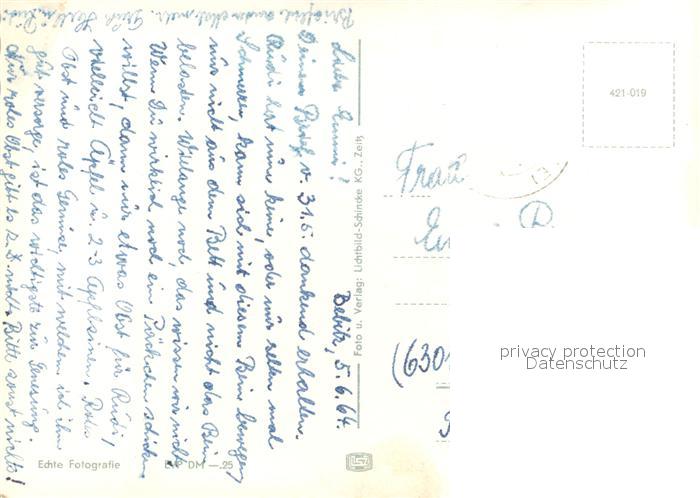 Bebitz, 5.6.64.
Liebe Emmi!
Deinen Brief v. 31.5. dankend erhalten.
Rudi hat nun keine, oder nur selten mal
Schmerzen, kann sich mit diesem Bein bewegen,
nur nicht aus dem Bett und nicht das Bein
belasten. Wielange noch, das wissen wir nicht.
Wenn Du wirklich noch ein Päckchen schicken
willst, dann nur etwas Obst für Rudi,
vielleicht Äpfel u. 2-3 Apfelsinen. Rotes
Obst und rotes Gemüse, mit welchem ich ihn
gut versorge, ist das wichtigste zur Genesung.
Nur rotes Obst gibt es z. Z. nicht. Bitte sonst nichts!
Foto u. Verlag: Lichtbild-Schincke KG., Zeitz
Echte Fotografie
EVP DM —.25
421-019
Frau
(630
privacy protection
Datenschutz